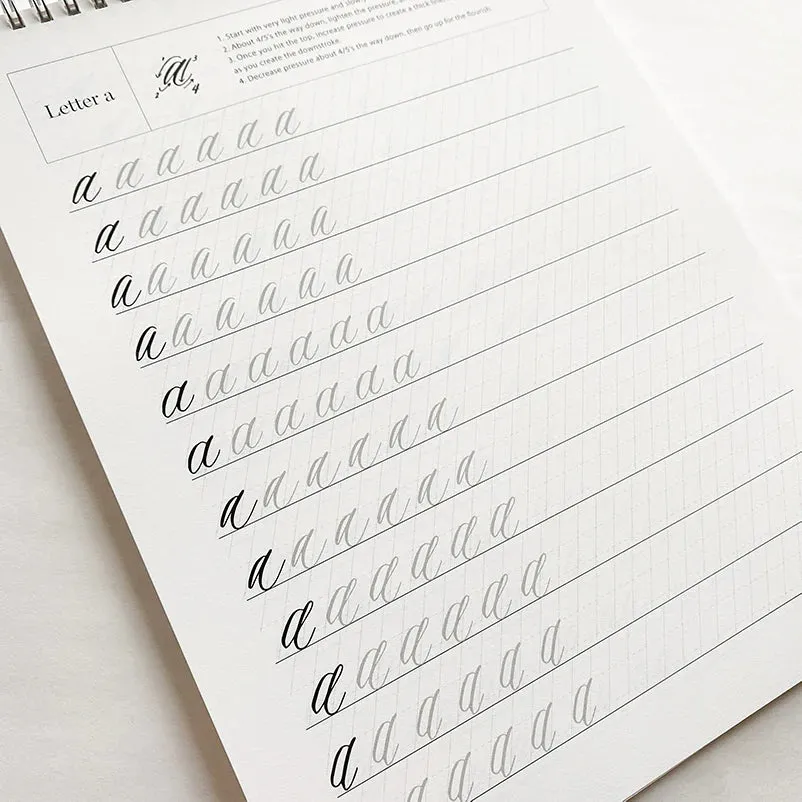 1. Start with very light pressure and
2. About 4/5's the way down, lighten the pressure,
3. Once you hit the top, increase pressure to create a thick
as you create the downstroke.
4. Decrease pressure about 4/5's the way down, then go up for the flourish.
Letter a
1 a 3
2 4
a a a a a a
a a a a a a
a a a a a a
a a a a a a
a a a a a a
a a a a a a
a a a a a a
a a a a a a
a a a a a a
a a a a a a
a a a a a a
a a a a a